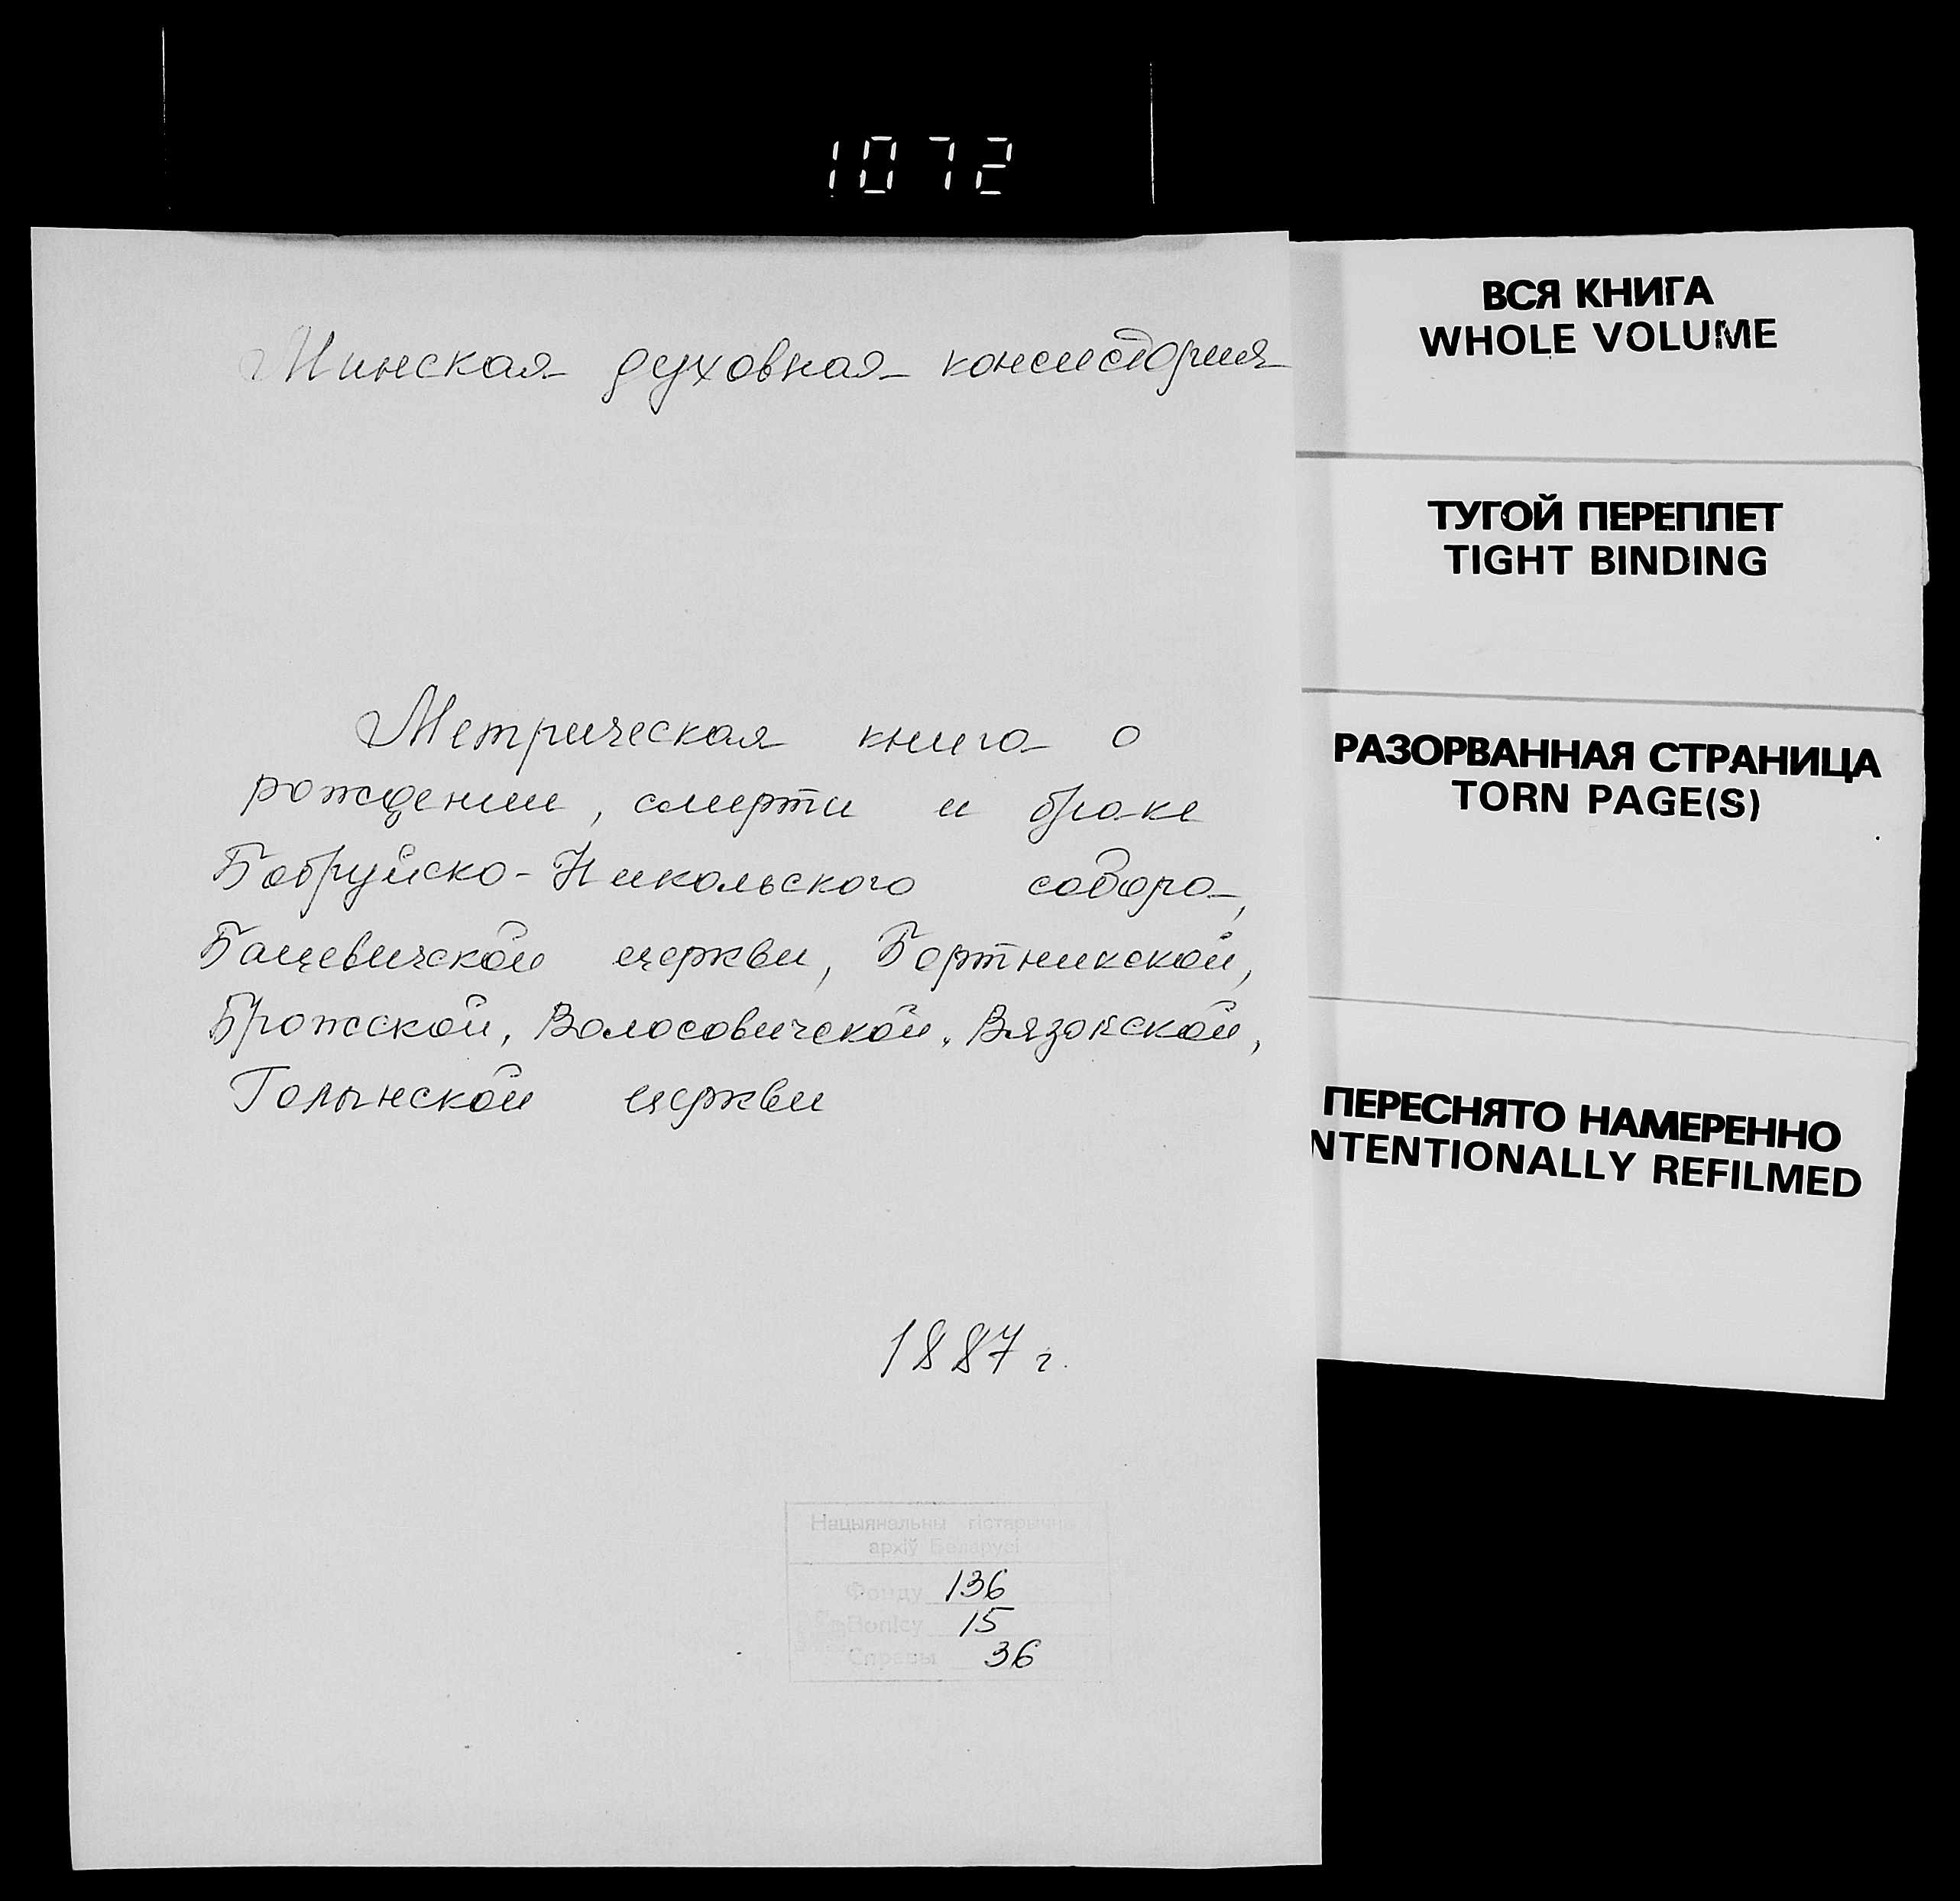 1072
Минская духовная консистория
Метрическая книга о
рождении, смерти и браке
Бобруйско-Никольского собора,
Бацевичской церкви, Бортникской,
Брожской, Волосовичской, Вязокской,
Голынской церкви
1887 г.
Нацыянальны гістарычны
архіў Беларусі
Фонду 136
Вопісу 15
Справы 36
ВСЯ КНИГА
WHOLE VOLUME
ТУГОЙ ПЕРЕПЛЕТ
TIGHT BINDING
РАЗОРВАННАЯ СТРАНИЦА
TORN PAGE(S)
ПЕРЕСНЯТО НАМЕРЕННО
NTENTIONALLY REFILMED